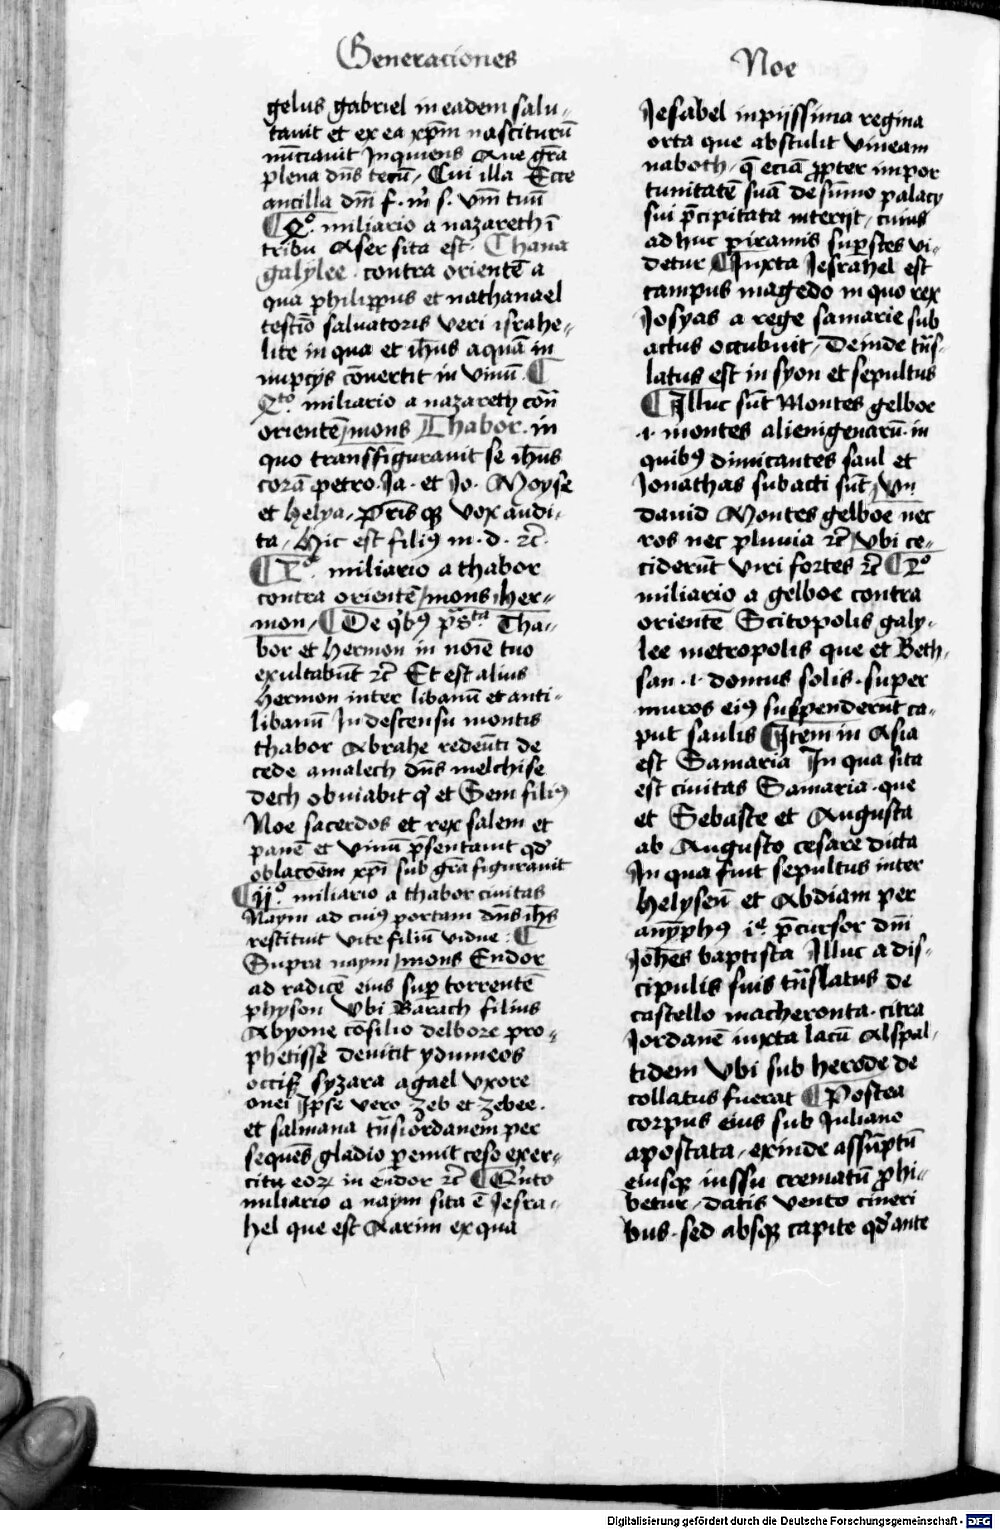 Generaciones
Noe
gelus gabriel in eadem salu-
tauit et ex ea xp̄m nasciturū
nūciauit Inquiens Aue grā
plena dn̄s tecū / Cui illa Ecce
ancilla dn̄i f. m̄ s. vm̄ tuū
¶ Qͦ. miliario a nazareth ī
tribu Aser sita est. Chana
galylee. contra orientē a
qua philippus et nathanael
testiō saluatoris veri israhe-
lite in qua et ih̄us aquā in
nupcijs cōuertit in vinū. ¶
Qtͦ miliario a nazareth con̄
orientē mons Thabor. in
quo transfigurauit se ih̄us
corā petro. Ja. et Jo. Moyse
et helya / pr̄is qꝫ vox audi-
ta / hic est filiꝰ m. d. ⁊c̄.
¶ Pͦ. miliario a thabor
contra orientē mons her-
mon / ¶ De qͥbꝰ ps̄ta Tha-
bor et hermon in noīe tuo
exultabūt ⁊c̄ Et est alius
hermon inter libanū et anti-
libanū In descensu montis
thabor Abrahe redeūti de
cede amalech dn̄s melchise
dech obuiabit qͥ et Sem filiꝰ
Noe sacerdos et rex salem et
panē et vinū p̄sentauit qd̄
oblacōem xp̄i sub grā figurauit
¶ ijͦ. miliario a thabor ciuitas
Naym ad cuiꝰ portam dn̄s ih̄s
restituit vite filiū vidue. ¶
Supra naym mons Endor
ad radicē eius sup̄ torrentē
physon Vbi Barach filius
Abyone cōsilio delbore pro-
phetisse deuicit ydumeos
occiſ syzara agael vxore
onei Ip̄se vero zeb et zebee.
et salmana tn̄s iordanem per
sequēs gladio ꝑemit ceso exer-
citu eoꝝ in endor ⁊c̄ ¶ Qͥnto
miliario a naym sita ē Jesra-
hel que est Aarim ex qua
Jesabel inpijssima regina
orta que abstulit vineam
naboth / q̄ eciā ꝓpter impor
tunitatē suā de sūmo palacij
sui p̄cipitata interijt / cuius
ad huc piramis suꝑstes vi-
detur ¶ Juxta Jesrahel est
campus magedo in quo rex
Josyas a rege samarie sub
actus occubuit / Deinde tn̄s-
latus est in syon et sepultus
¶ Illuc sūt Montes gelboe
.i. montes alienigenarū. in
quibꝰ dimicantes saul et
Jonathas subacti sūt / Vn̄
dauid Montes gelboe nec
ros nec pluuia ⁊c̄ Vbi ce-
ciderūt viri fortes ⁊c̄ ¶ Pͦ
miliario a gelboe contra
orientē Scitopolis galy-
lee metropolis que et Beth-
san .i. domus solis. super
muros eiꝰ suspenderūt ca-
put saulis ¶ Item in Asia
est Samaria In qua sita
est ciuitas Samaria. que
et Sebaste et Augusta
ab Augusto cesare dicta
In qua fuit sepultus inter
helyseū et Abdiam per
p̄cursor dn̄i
Joh̄es baptista Illuc a dis-
cipulis suis tn̄slatus de
castello macheronta. citra
Jordanē iuxta lacū Aspal-
tidem Vbi sub herode de
collatus fuerat ¶ Postea
corpus eius sub Juliano
apostata / exinde assūptū
eiusqꝫ iussu crematū ꝓhi-
betur / datis vento cineri
bus. sed absqꝫ capite qd̄ ante
Digitalisierung gefördert durch die Deutsche Forschungsgemeinschaft - DFG